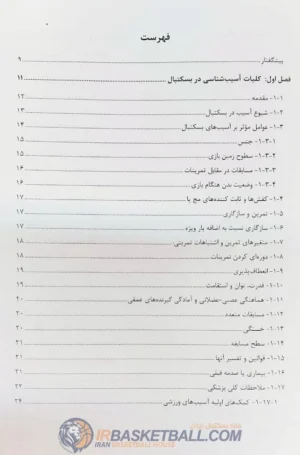 فهرست
پیشگفتار ... ۹
فصل اول: کلیات آسیب‌شناسی در بسکتبال ... ۱۱
۱-۱- مقدمه ... ۱۲
۱-۲- شیوع آسیب در بسکتبال ... ۱۳
۱-۳- عوامل مؤثر بر آسیب‌های بسکتبال ... ۱۴
۱-۳-۱- جنس ... ۱۵
۱-۳-۲- سطوح زمین بازی ... ۱۵
۱-۳-۳- مسابقات در مقابل تمرینات ... ۱۵
۱-۳-۴- وضعیت بدن هنگام بازی ... ۱۶
۱-۴- کفش‌ها و ثابت کننده‌های مچ پا ... ۱۷
۱-۵- تمرین و سازگاری ... ۱۷
۱-۶- سازگاری نسبت به اضافه بار ویژه ... ۱۷
۱-۷- متغیرهای تمرین و اشتباهات تمرینی ... ۱۸
۱-۸- دوره‌ای کردن تمرینات ... ۱۸
۱-۹- انعطاف‌پذیری ... ۱۹
۱-۱۰- قدرت، توان و استقامت ... ۱۹
۱-۱۱- هماهنگی عصبی-عضلانی و آمادگی گیرنده‌های عمقی ... ۲۰
۱-۱۲- مسابقات متعدد ... ۲۰
۱-۱۳- خستگی ... ۲۱
۱-۱۴- سطح مسابقه ... ۲۱
۱-۱۵- قوانین و تفسیر آنها ... ۲۱
۱-۱۶- بیماری یا صدمه قبلی ... ۲۱
۱-۱۷- ملاحظات کلی پزشکی ... ۲۳
۱-۱۷-۱- کمک‌های اولیه آسیب‌های ورزشی ... ۲۴
خانه بسکتبال ایران
IRBASKETBALL.COM
IRAN BASKETBALL HOUSE